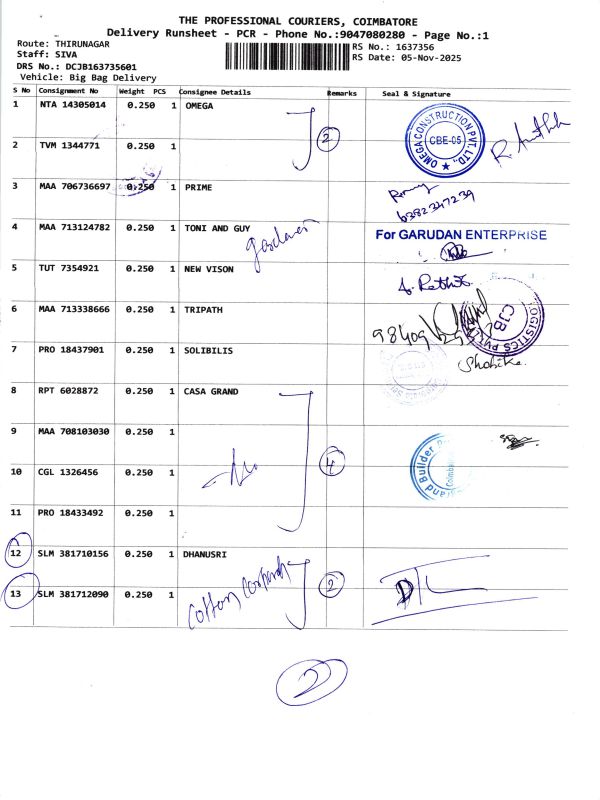 THE PROFESSIONAL COURIERS, COIMBATORE
Delivery Runsheet - PCR - Phone No.:9047080280 - Page No.:1
Route: THIRUNAGAR
Staff: SIVA
DRS No.: DCJB163735601
Vehicle: Big Bag Delivery
RS No.: 1637356
RS Date: 05-Nov-2025
S No Consignment No Weight PCS Consignee Details Remarks Seal & Signature
1 NTA 14305014 0.250 1 OMEGA
2
OMEGA CONSTRUCTION PVT. LTD. ★
CBE-05
2 TVM 1344771 0.250 1
3 MAA 706736697 0.250 1 PRIME
6382347239
4 MAA 713124782 0.250 1 TONI AND GUY
For GARUDAN ENTERPRISE
5 TUT 7354921 0.250 1 NEW VISON
6 MAA 713338666 0.250 1 TRIPATH
98409
CJB
LOGISTICS PVT
7 PRO 18437901 0.250 1 SOLIBILIS
8 RPT 6028872 0.250 1 CASA GRAND
9 MAA 708103030 0.250 1
4
Builder
10 CGL 1326456 0.250 1
11 PRO 18433492 0.250 1
12 SLM 381710156 0.250 1 DHANUSRI
13 SLM 381712090 0.250 1
Cotton
2
2